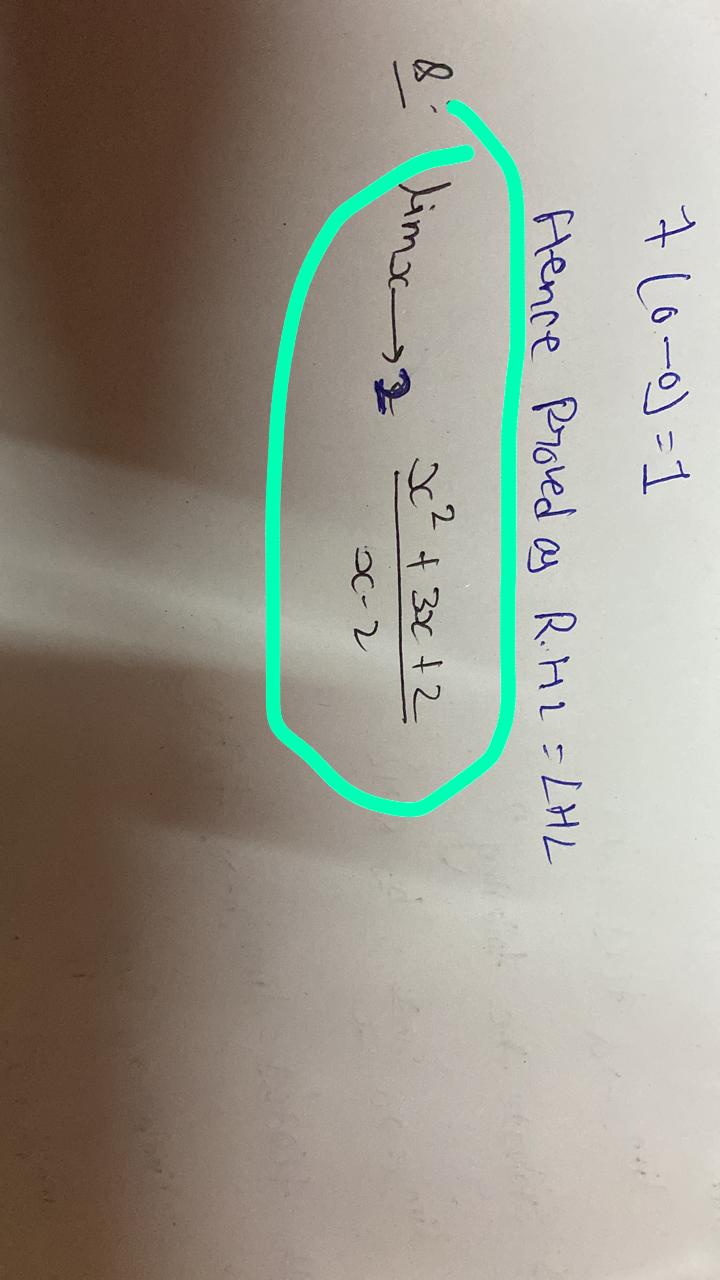 7(0-0)=1
Hence Proved as R.HL = LHL
Q.
lim x→2 x²+3x+2
x-2